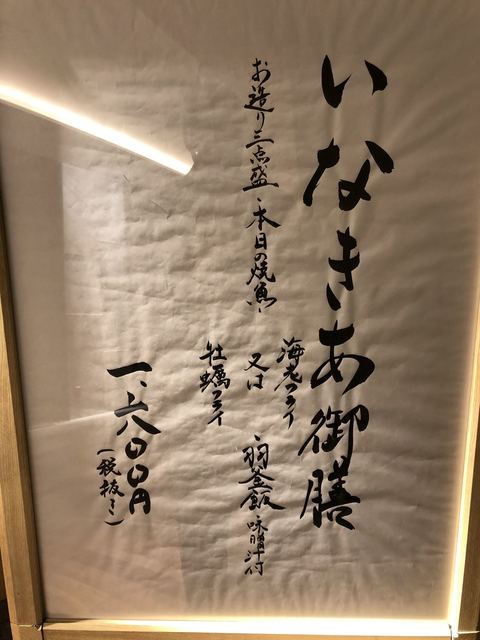 いなきあ御膳
お造り三点盛・本日の焼魚・
海老フライ
又は
牡蠣フライ
・羽釜飯・味噌汁付
一、六八〇〇円
(税抜き)